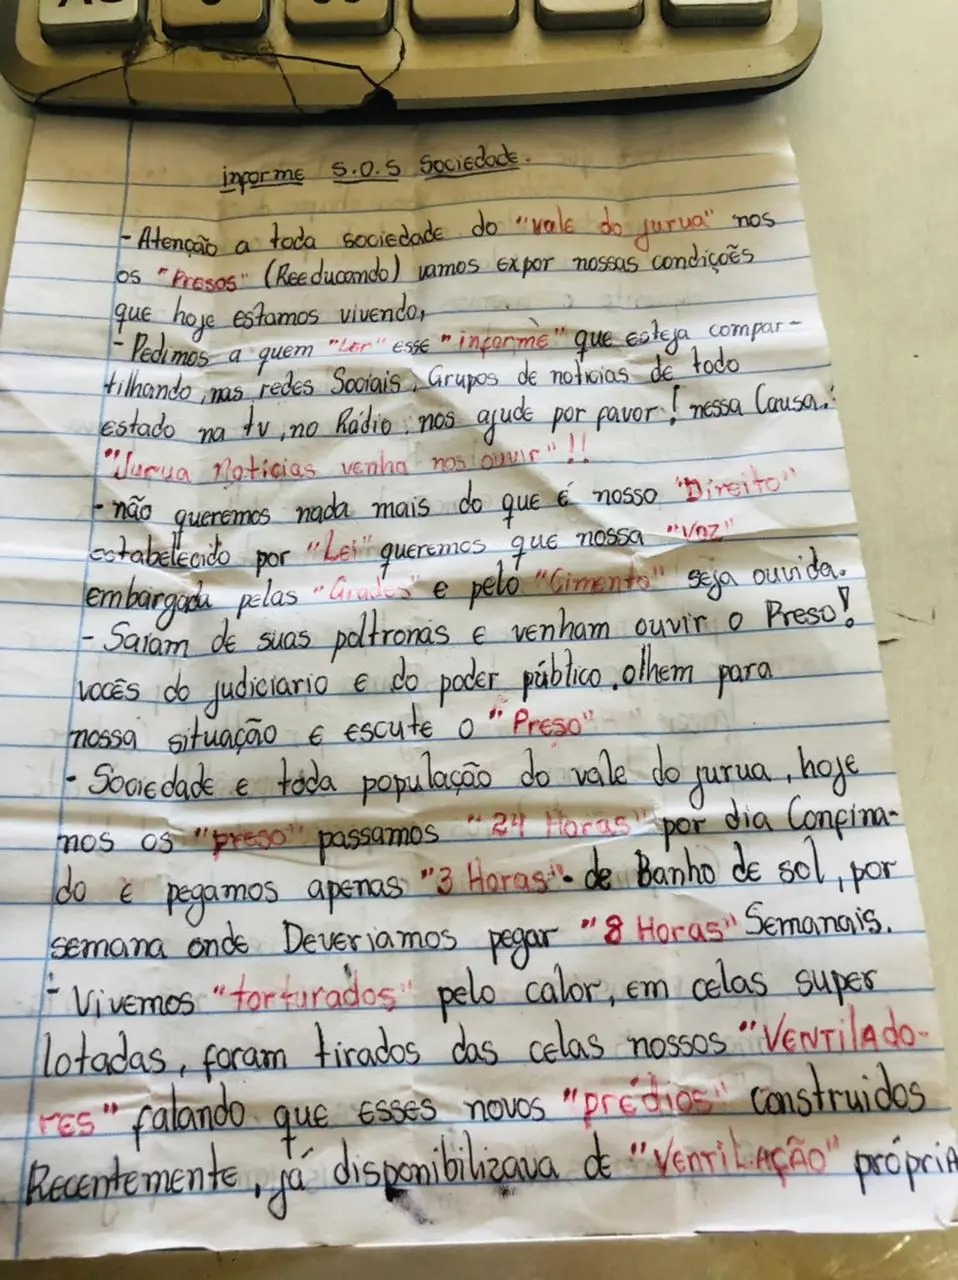 informe S.O.S Sociedade.
- Atenção a toda sociedade do "vale do jurua" nos
os "Presos" (Reeducando) vamos expor nossas condições
que hoje estamos vivendo,
- Pedimos a quem "Ler" esse "informe" que esteja compar-
tilhando, nas redes Sociais, Grupos de noticias de todo
estado na tv, no Rádio, nos ajude por favor! nessa Causa.!
"Jurua Noticias venha nos ouvir"!!
- não queremos nada mais do que é nosso "Direito"
estabelecido por "Lei" queremos que nossa "Voz"
embargada pelas "Grades" e pelo "Cimento" seja ouvida.
- Saiam de suas poltronas e venham ouvir o Preso!
vocês do judiciario e do poder público, olhem para
nossa situação e escute o "Preso"
- Sociedade e toda população do vale do jurua, hoje
nos os "preso" passamos "24 Horas" por dia Confina-
do e pegamos apenas "3 Horas" de Banho de sol, por
semana onde Deveriamos pegar "8 Horas" Semanais.
- Vivemos "torturados" pelo calor, em celas super
lotadas, foram tirados das celas nossos "VENTILADO-
RES" falando que esses novos "prédios" construidos
Recentemente, já disponibilizava de "VENTILAÇÃO" própria